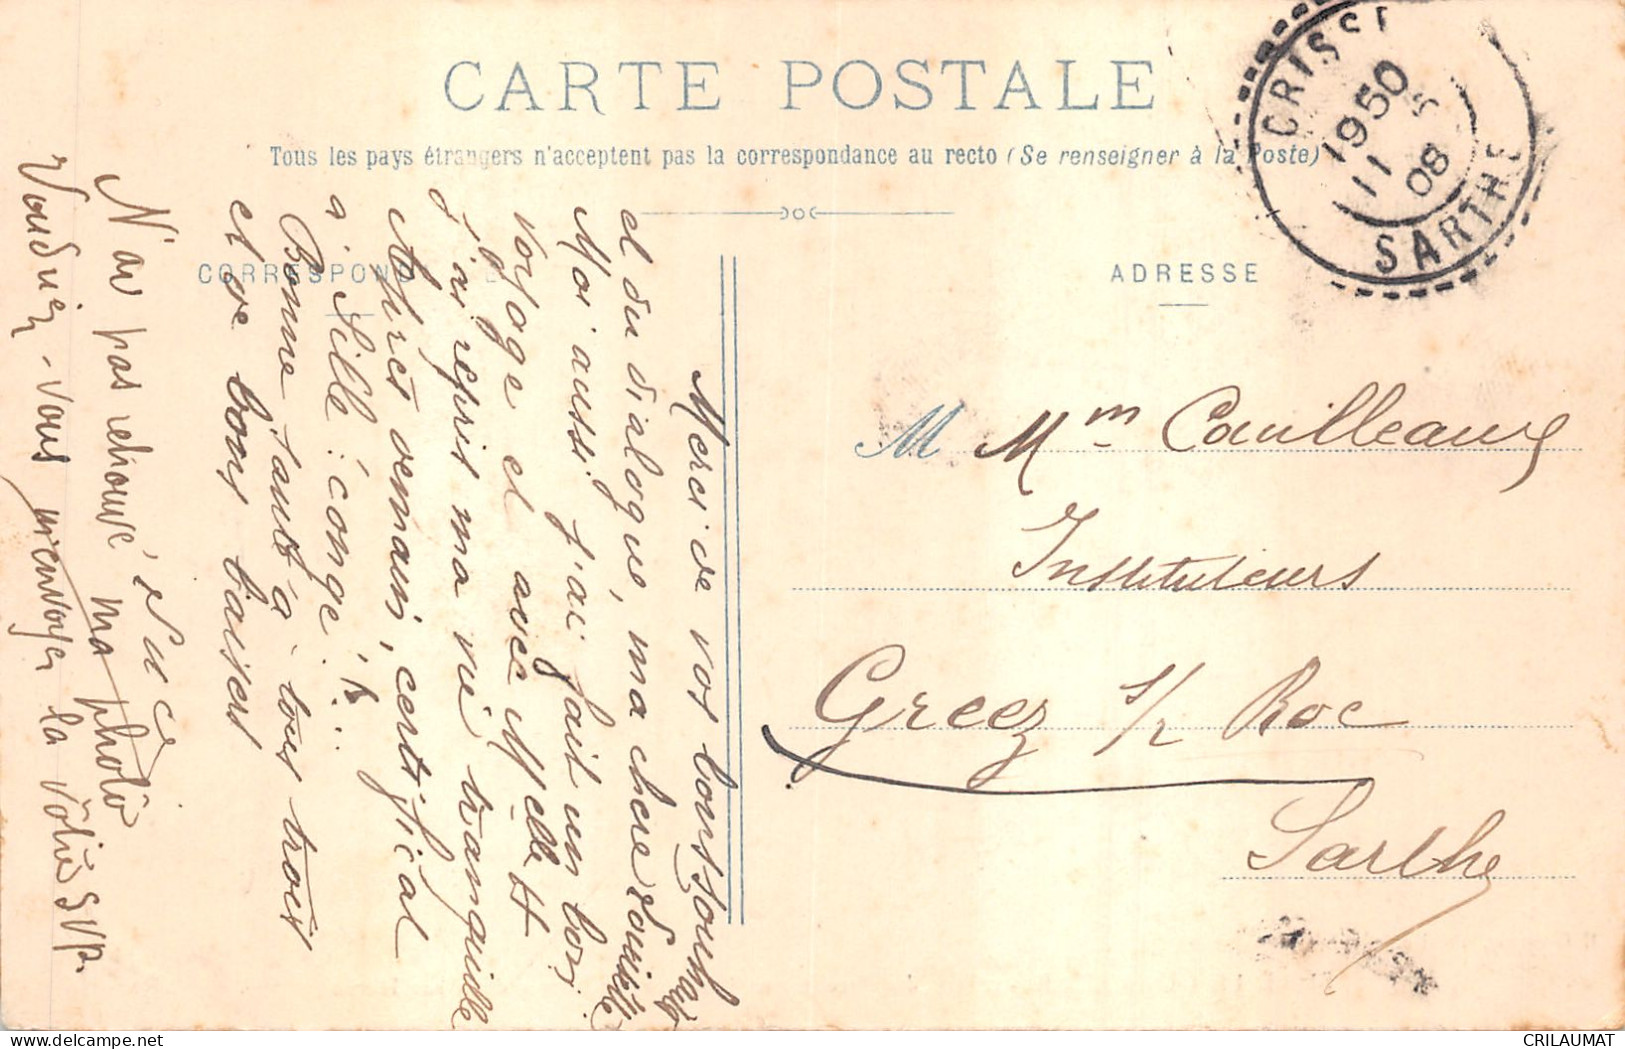 CARTE POSTALE
Tous les pays étrangers n'acceptent pas la correspondance au recto (Se renseigner à la Poste)
CORRESPOND
ADRESSE
CRISSE
1950
11 5
08
SARTHE
M Mm Couilleaux
Instituteurs
Greez s/ Roc
Sarthe
Merci de vos bons souhaits
et du dialogue, ma chère
Moi aussi j'ai fait un bon
voyage et avec Melle H
j'ai repris ma vie tranquille
Après demain, certifical
à Sillé : congé !..
Bonne santé à tous trois
et de bons baisers
N'ai pas retrouvé ma photo
Voudriez-vous m'envoyer la vôtre SVP.
CRILAUMAT